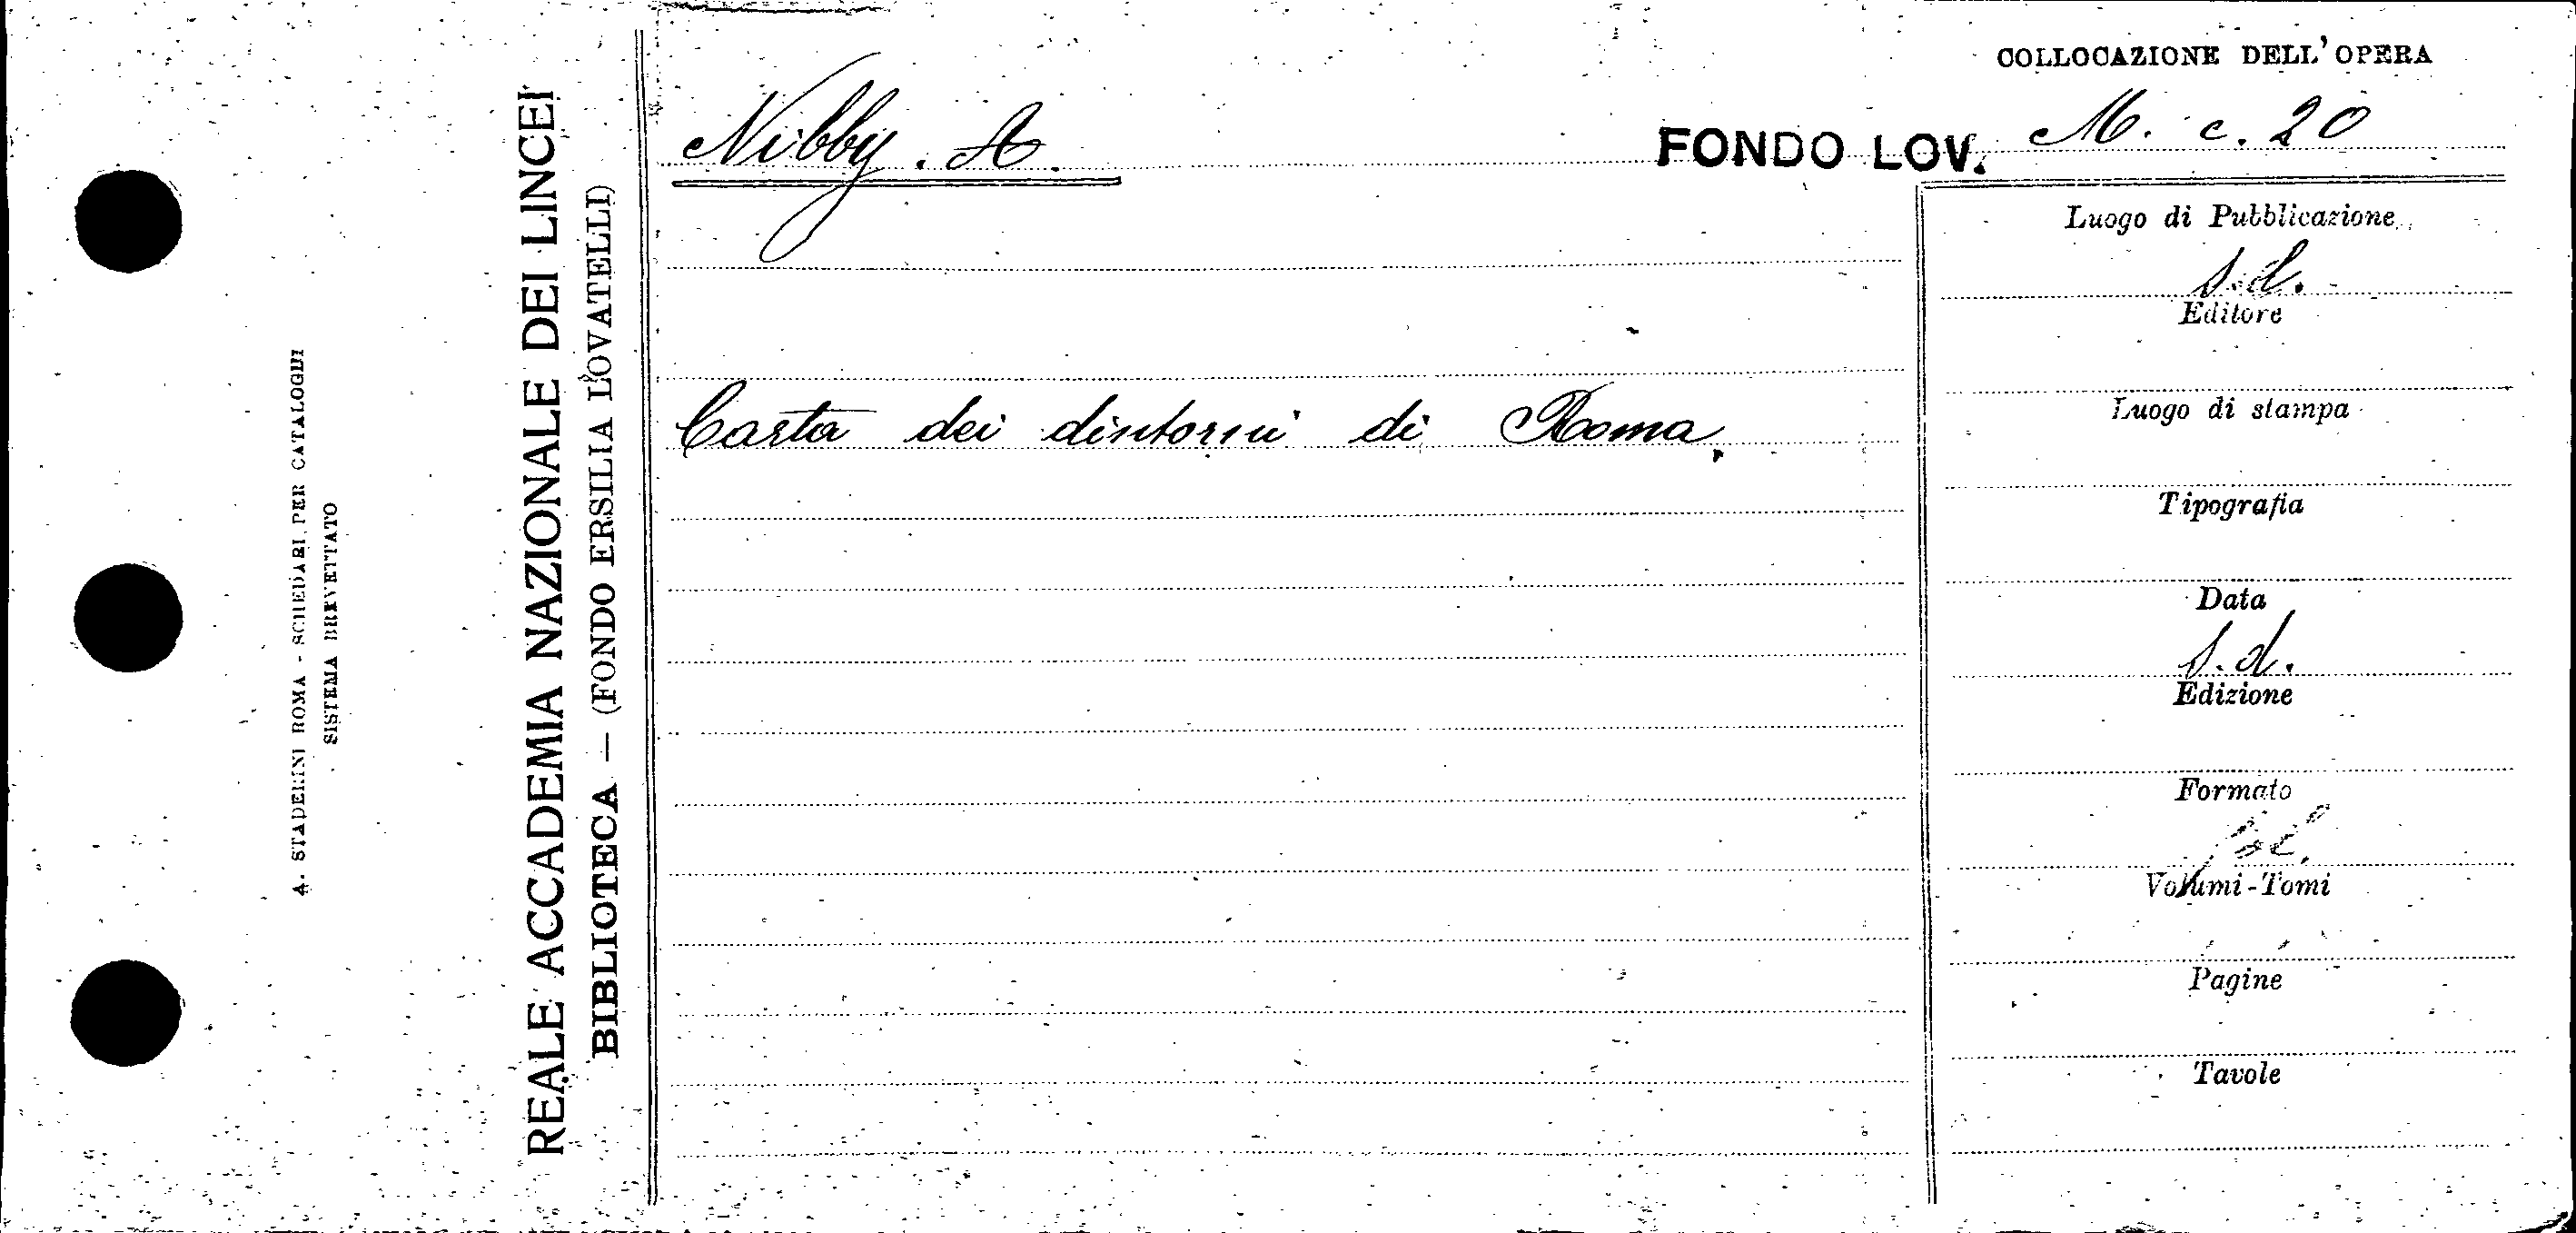 A. STADERINI ROMA - SCHEDARI PER CATALOGHI
SISTEMA BREVETTATO
REALE ACCADEMIA NAZIONALE DEI LINCEI
BIBLIOTECA — (FONDO ERSILIA LOVATELLI)
Nibby. A.
Carta dei dintorni di Roma.
COLLOCAZIONE DELL'OPERA
FONDO LOV. M. c. 20
Luogo di Pubblicazione
s.l.
Editore
Luogo di stampa
Tipografia
Data
s.d.
Edizione
Formato
Volumi-Tomi
Pagine
Tavole